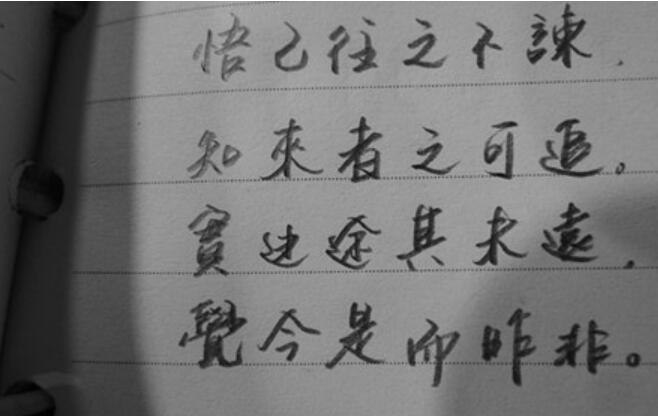 悟已往之不諫，
知來者之可追。
實迷途其未遠，
覺今是而昨非。